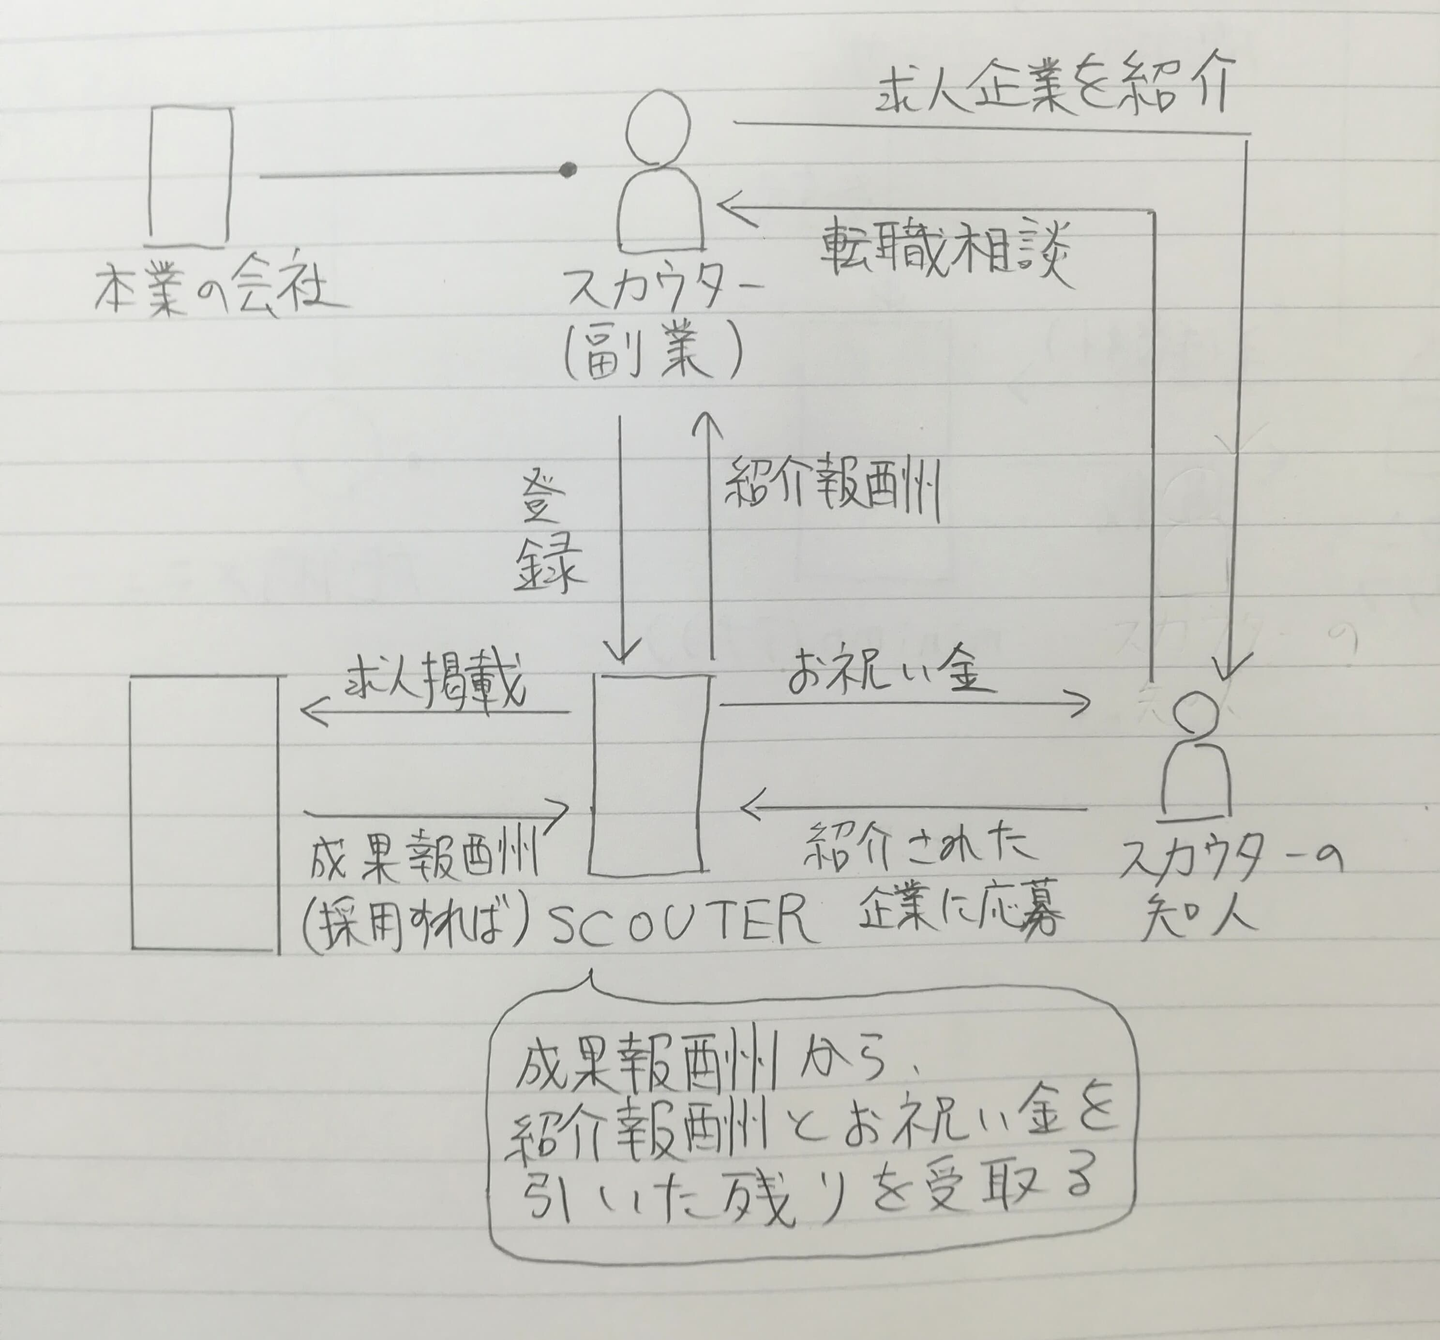 求人企業を紹介
転職相談
本業の会社
スカウター
(副業)
登録
紹介報酬州
求人掲載
お祝い金
成果報酬州
(採用すれば)
SCOUTER
紹介された
企業に応募
スカウターの
知人
成果報酬州から、
紹介報酬州とお祝い金を
引いた残りを受取る